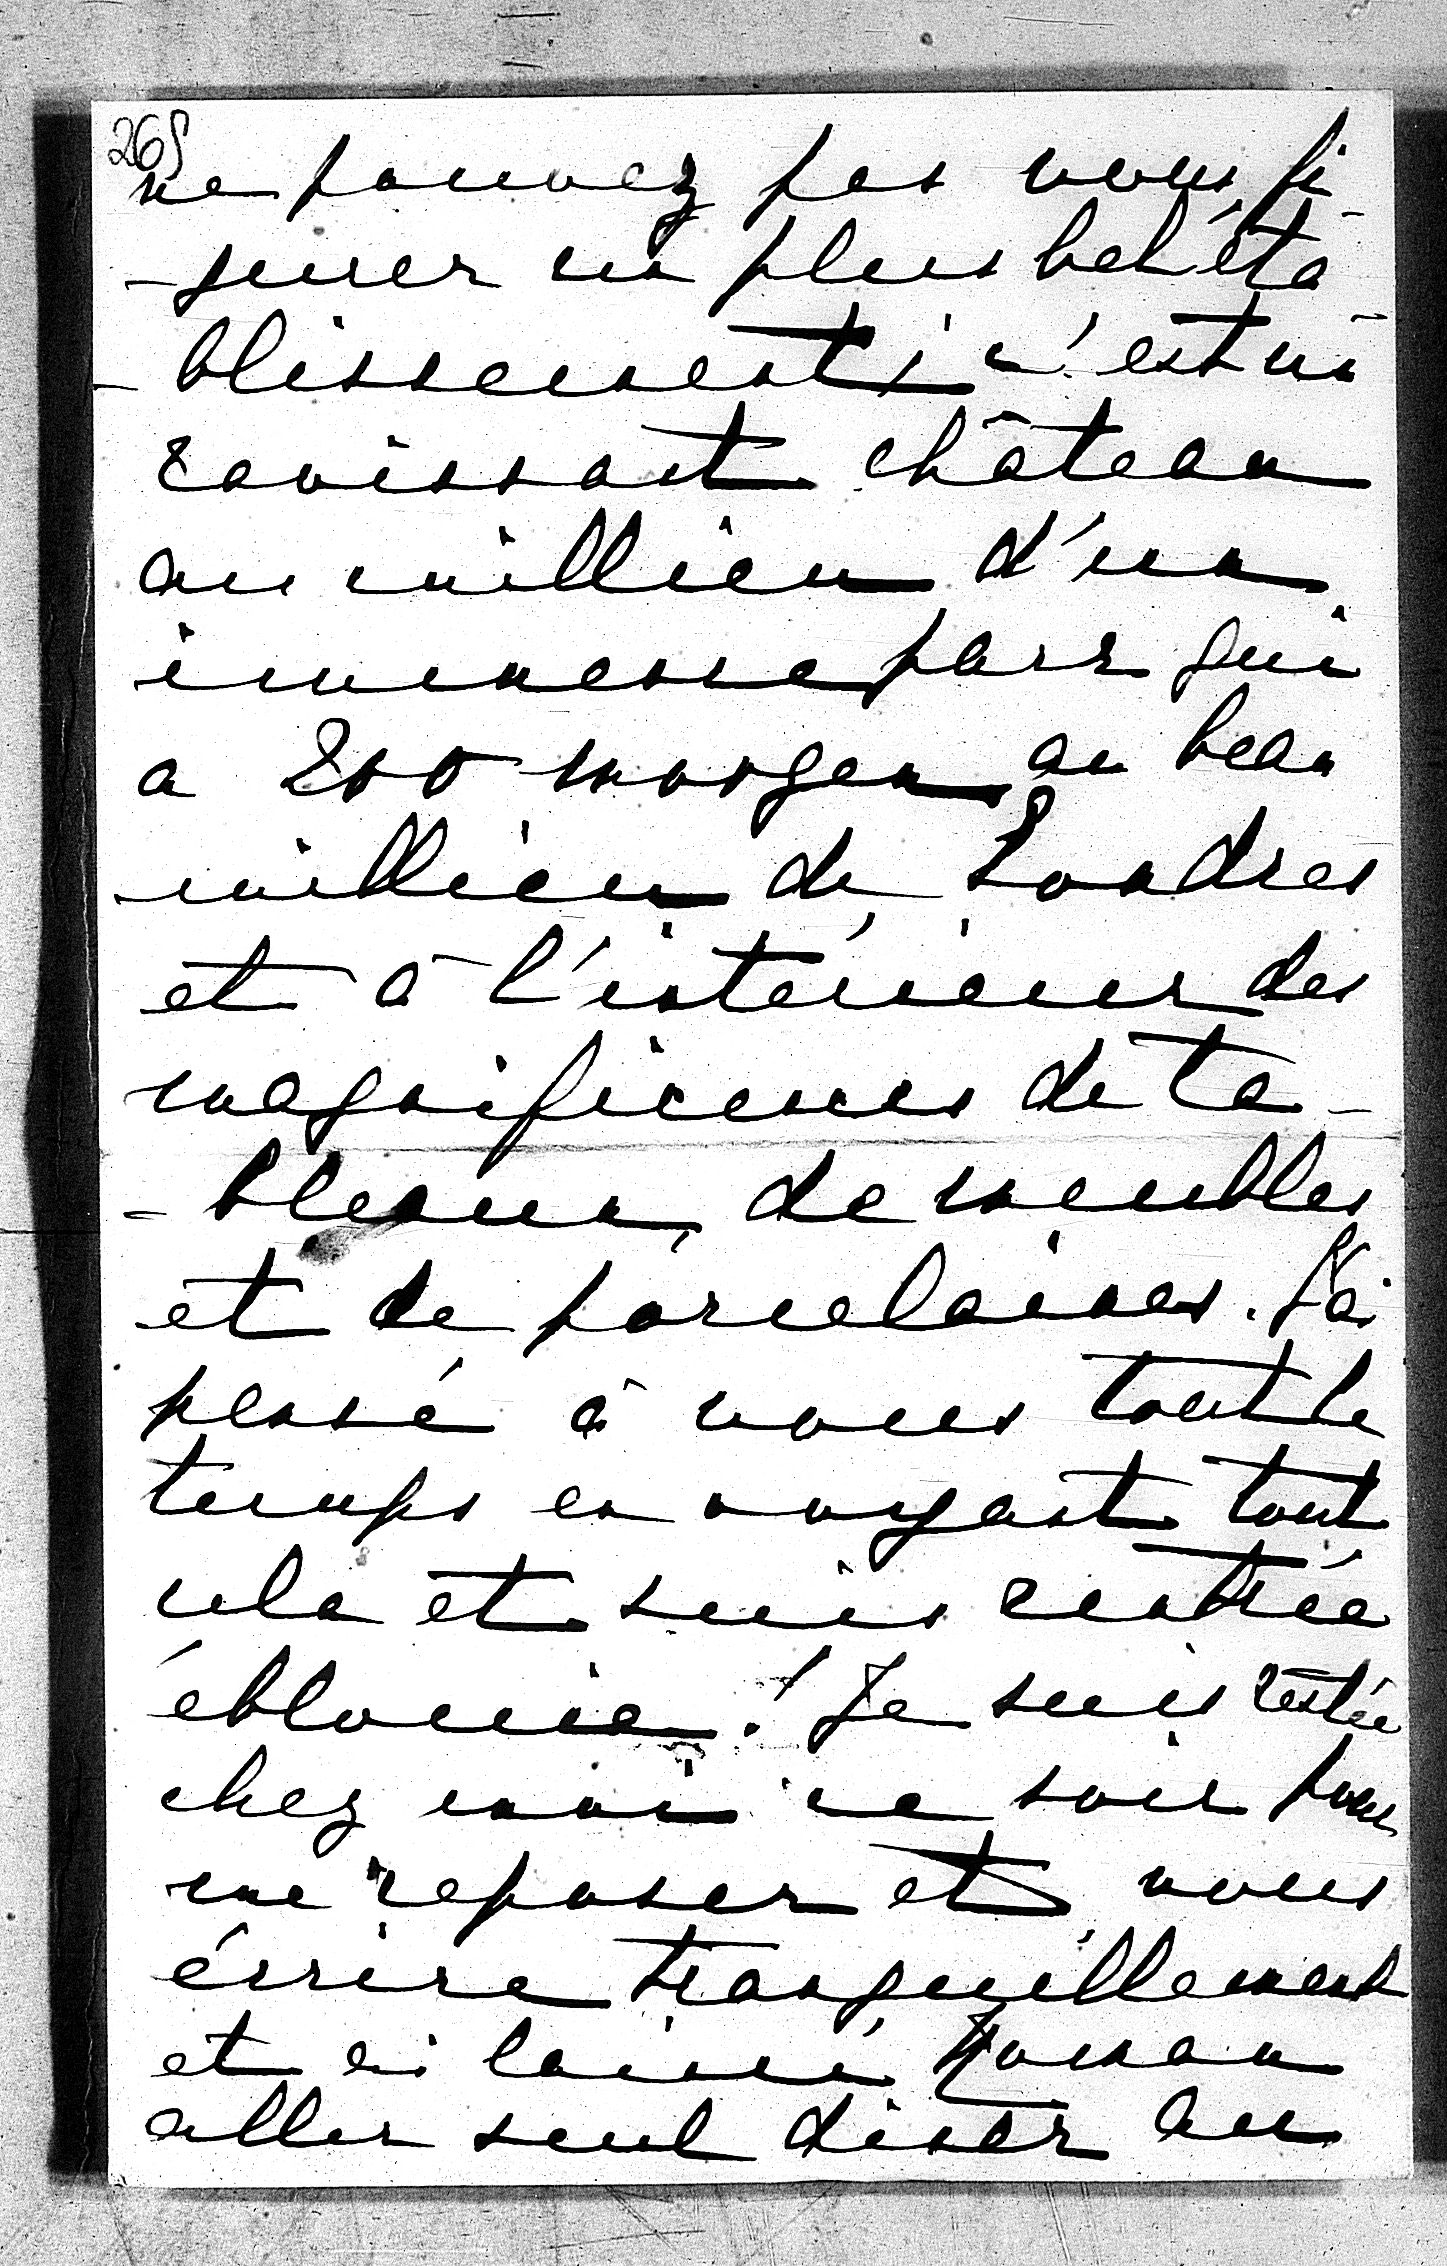 268
ne pouvez pas vous fi-
-gurer un plus bel éta-
-blissement; c'est un
ravissant château
au millieu d'un
immense parc qui
a 200 morgen au beau
millieu de Londres
et à l'intérieur des
magnificences de ta-
-bleaux, de meubles
et de porcelaines. J'ai
pensé à vous tout le
temps en voyant tout
cela et suis rentrée
éblouie! Je suis restée
chez moi ce soir pour
me reposer et vous
écrire tranquillement
et ai laissé Roman
aller seul diner au